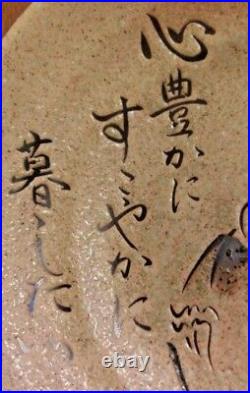 心豊かに
すこやかに
暮したい